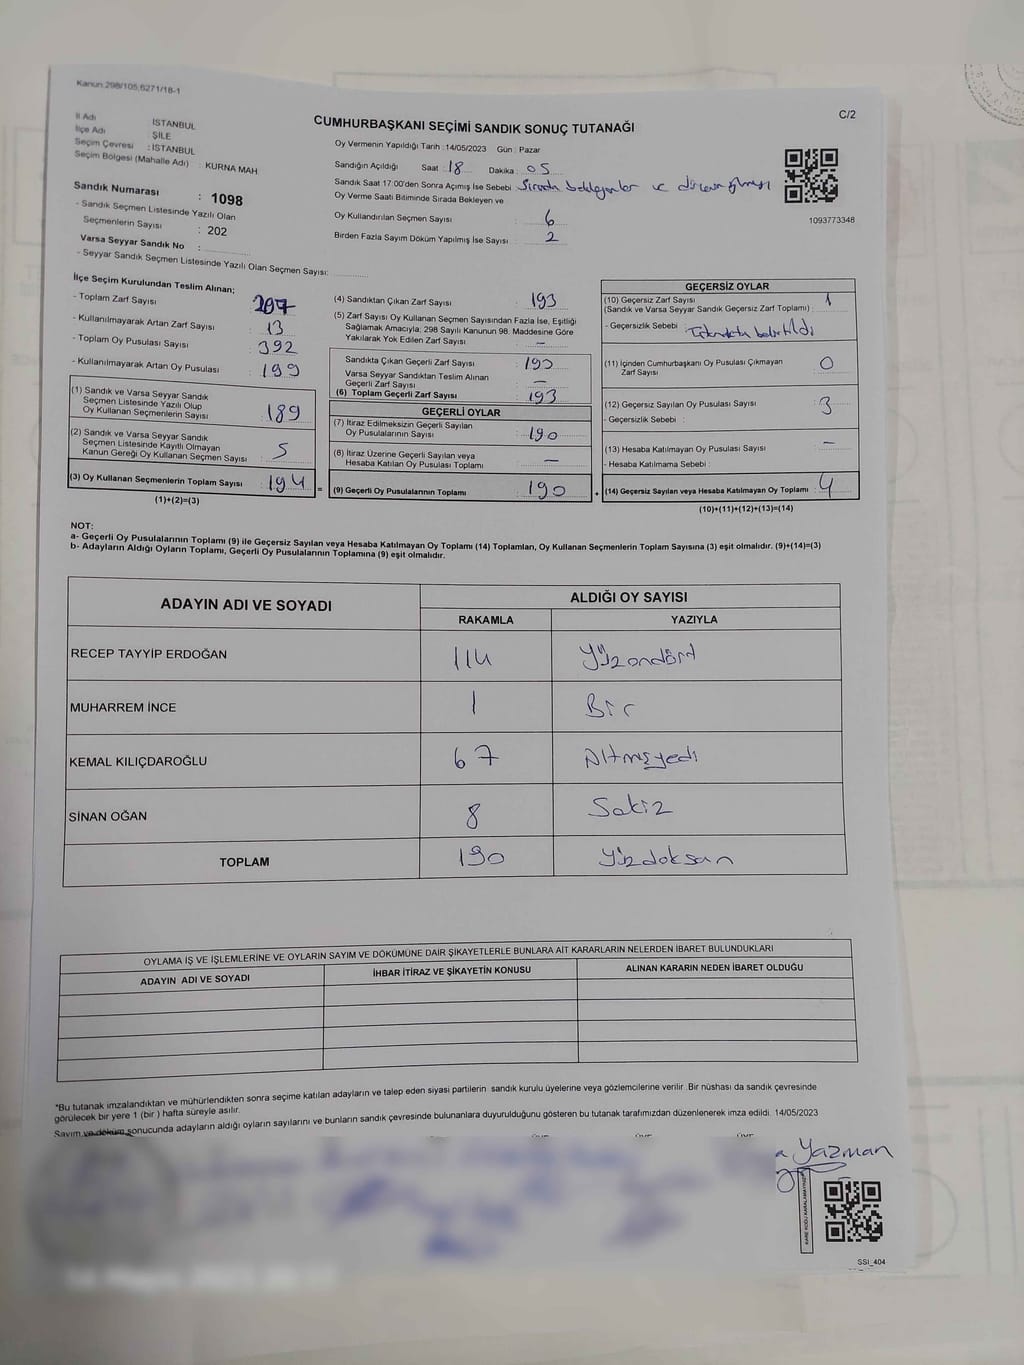 Kanun.298/105,6271/18-1
C/2
CUMHURBAŞKANI SEÇİMİ SANDIK SONUÇ TUTANAĞI
İl Adı İSTANBUL
İlçe Adı ŞİLE
Seçim Çevresi : İSTANBUL
Seçim Bölgesi (Mahalle Adı) : KURNA MAH
Sandık Numarası : 1098
- Sandık Seçmen Listesinde Yazılı Olan
Seçmenlerin Sayısı : 202
Varsa Seyyar Sandık No :
- Seyyar Sandık Seçmen Listesinde Yazılı Olan Seçmen Sayısı:
Oy Vermenin Yapıldığı Tarih :14/05/2023 Gün : Pazar
Sandığın Açıldığı Saat : 18 Dakika : 05
Sandık Saat 17:00'den Sonra Açımış İse Sebebi : Sırada bekleyenler ve
Oy Verme Saati Bitiminde Sırada Bekleyen ve
Oy Kullandırılan Seçmen Sayısı : 6
Birden Fazla Sayım Döküm Yapılmış İse Sayısı : 2
1093773348
İlçe Seçim Kurulundan Teslim Alınan;
- Toplam Zarf Sayısı : 207
- Kullanılmayarak Artan Zarf Sayısı : 13
- Toplam Oy Pusulası Sayısı : 392
- Kullanılmayarak Artan Oy Pusulası : 199
(1) Sandık ve Varsa Seyyar Sandık
Seçmen Listesinde Yazılı Olup
Oy Kullanan Seçmenlerin Sayısı : 189
(2) Sandık ve Varsa Seyyar Sandık
Seçmen Listesinde Kayıtlı Olmayan
Kanun Gereği Oy Kullanan Seçmen Sayısı : 5
(3) Oy Kullanan Seçmenlerin Toplam Sayısı : 194
(1)+(2)=(3)
=
(4) Sandıktan Çıkan Zarf Sayısı : 193
(5) Zarf Sayısı Oy Kullanan Seçmen Sayısından Fazla İse, Eşitliği
Sağlamak Amacıyla; 298 Sayılı Kanunun 98. Maddesine Göre
Yakılarak Yok Edilen Zarf Sayısı : –
Sandıkta Çıkan Geçerli Zarf Sayısı : 193
Varsa Seyyar Sandıktan Teslim Alınan
Geçerli Zarf Sayısı : –
(6) Toplam Geçerli Zarf Sayısı : 193
GEÇERLİ OYLAR
(7) İtiraz Edilmeksizin Geçerli Sayılan
Oy Pusulalarının Sayısı : 190
(8) İtiraz Üzerine Geçerli Sayılan veya
Hesaba Katılan Oy Pusulası Toplamı : –
(9) Geçerli Oy Pusulalarının Toplamı : 190
+
GEÇERSİZ OYLAR
(10) Geçersiz Zarf Sayısı : 1
(Sandık ve Varsa Seyyar Sandık Geçersiz Zarf Toplamı)
- Geçersizlik Sebebi : belirtildi
(11) İçinden Cumhurbaşkanı Oy Pusulası Çıkmayan
Zarf Sayısı : 0
(12) Geçersiz Sayılan Oy Pusulası Sayısı : 3
- Geçersizlik Sebebi :
(13) Hesaba Katılmayan Oy Pusulası Sayısı : –
- Hesaba Katılmama Sebebi :
(14) Geçersiz Sayılan veya Hesaba Katılmayan Oy Toplamı : 4
(10)+(11)+(12)+(13)=(14)
NOT:
a- Geçerli Oy Pusulalarının Toplamı (9) ile Geçersiz Sayılan veya Hesaba Katılmayan Oy Toplamı (14) Toplamları, Oy Kullanan Seçmenlerin Toplam Sayısına (3) eşit olmalıdır. (9)+(14)=(3)
b- Adayların Aldığı Oyların Toplamı, Geçerli Oy Pusulalarının Toplamına (9) eşit olmalıdır.
ADAYIN ADI VE SOYADI ALDIĞI OY SAYISI
RAKAMLA YAZIYLA
RECEP TAYYİP ERDOĞAN 114 Yüzondört
MUHARREM İNCE 1 Bir
KEMAL KILIÇDAROĞLU 67 Altmışyedi
SİNAN OĞAN 8 Sekiz
TOPLAM 190 Yüzdoksan
OYLAMA İŞ VE İŞLEMLERİNE VE OYLARIN SAYIM VE DÖKÜMÜNE DAİR ŞİKAYETLERLE BUNLARA AİT KARARLARIN NELERDEN İBARET BULUNDUKLARI
ADAYIN ADI VE SOYADI İHBAR İTİRAZ VE ŞİKAYETİN KONUSU ALINAN KARARIN NEDEN İBARET OLDUĞU
*Bu tutanak imzalandıktan ve mühürlendikten sonra seçime katılan adayların ve talep eden siyasi partilerin sandık kurulu üyelerine veya gözlemcilerine verilir .Bir nüshası da sandık çevresinde
görülecek bir yere 1 (bir ) hafta süreyle asılır.
Sayım ve döküm sonucunda adayların aldığı oyların sayılarını ve bunların sandık çevresinde bulunanlara duyurulduğunu gösteren bu tutanak tarafımızdan düzenlenerek imza edildi. 14/05/2023
a Yazman
SSI_404